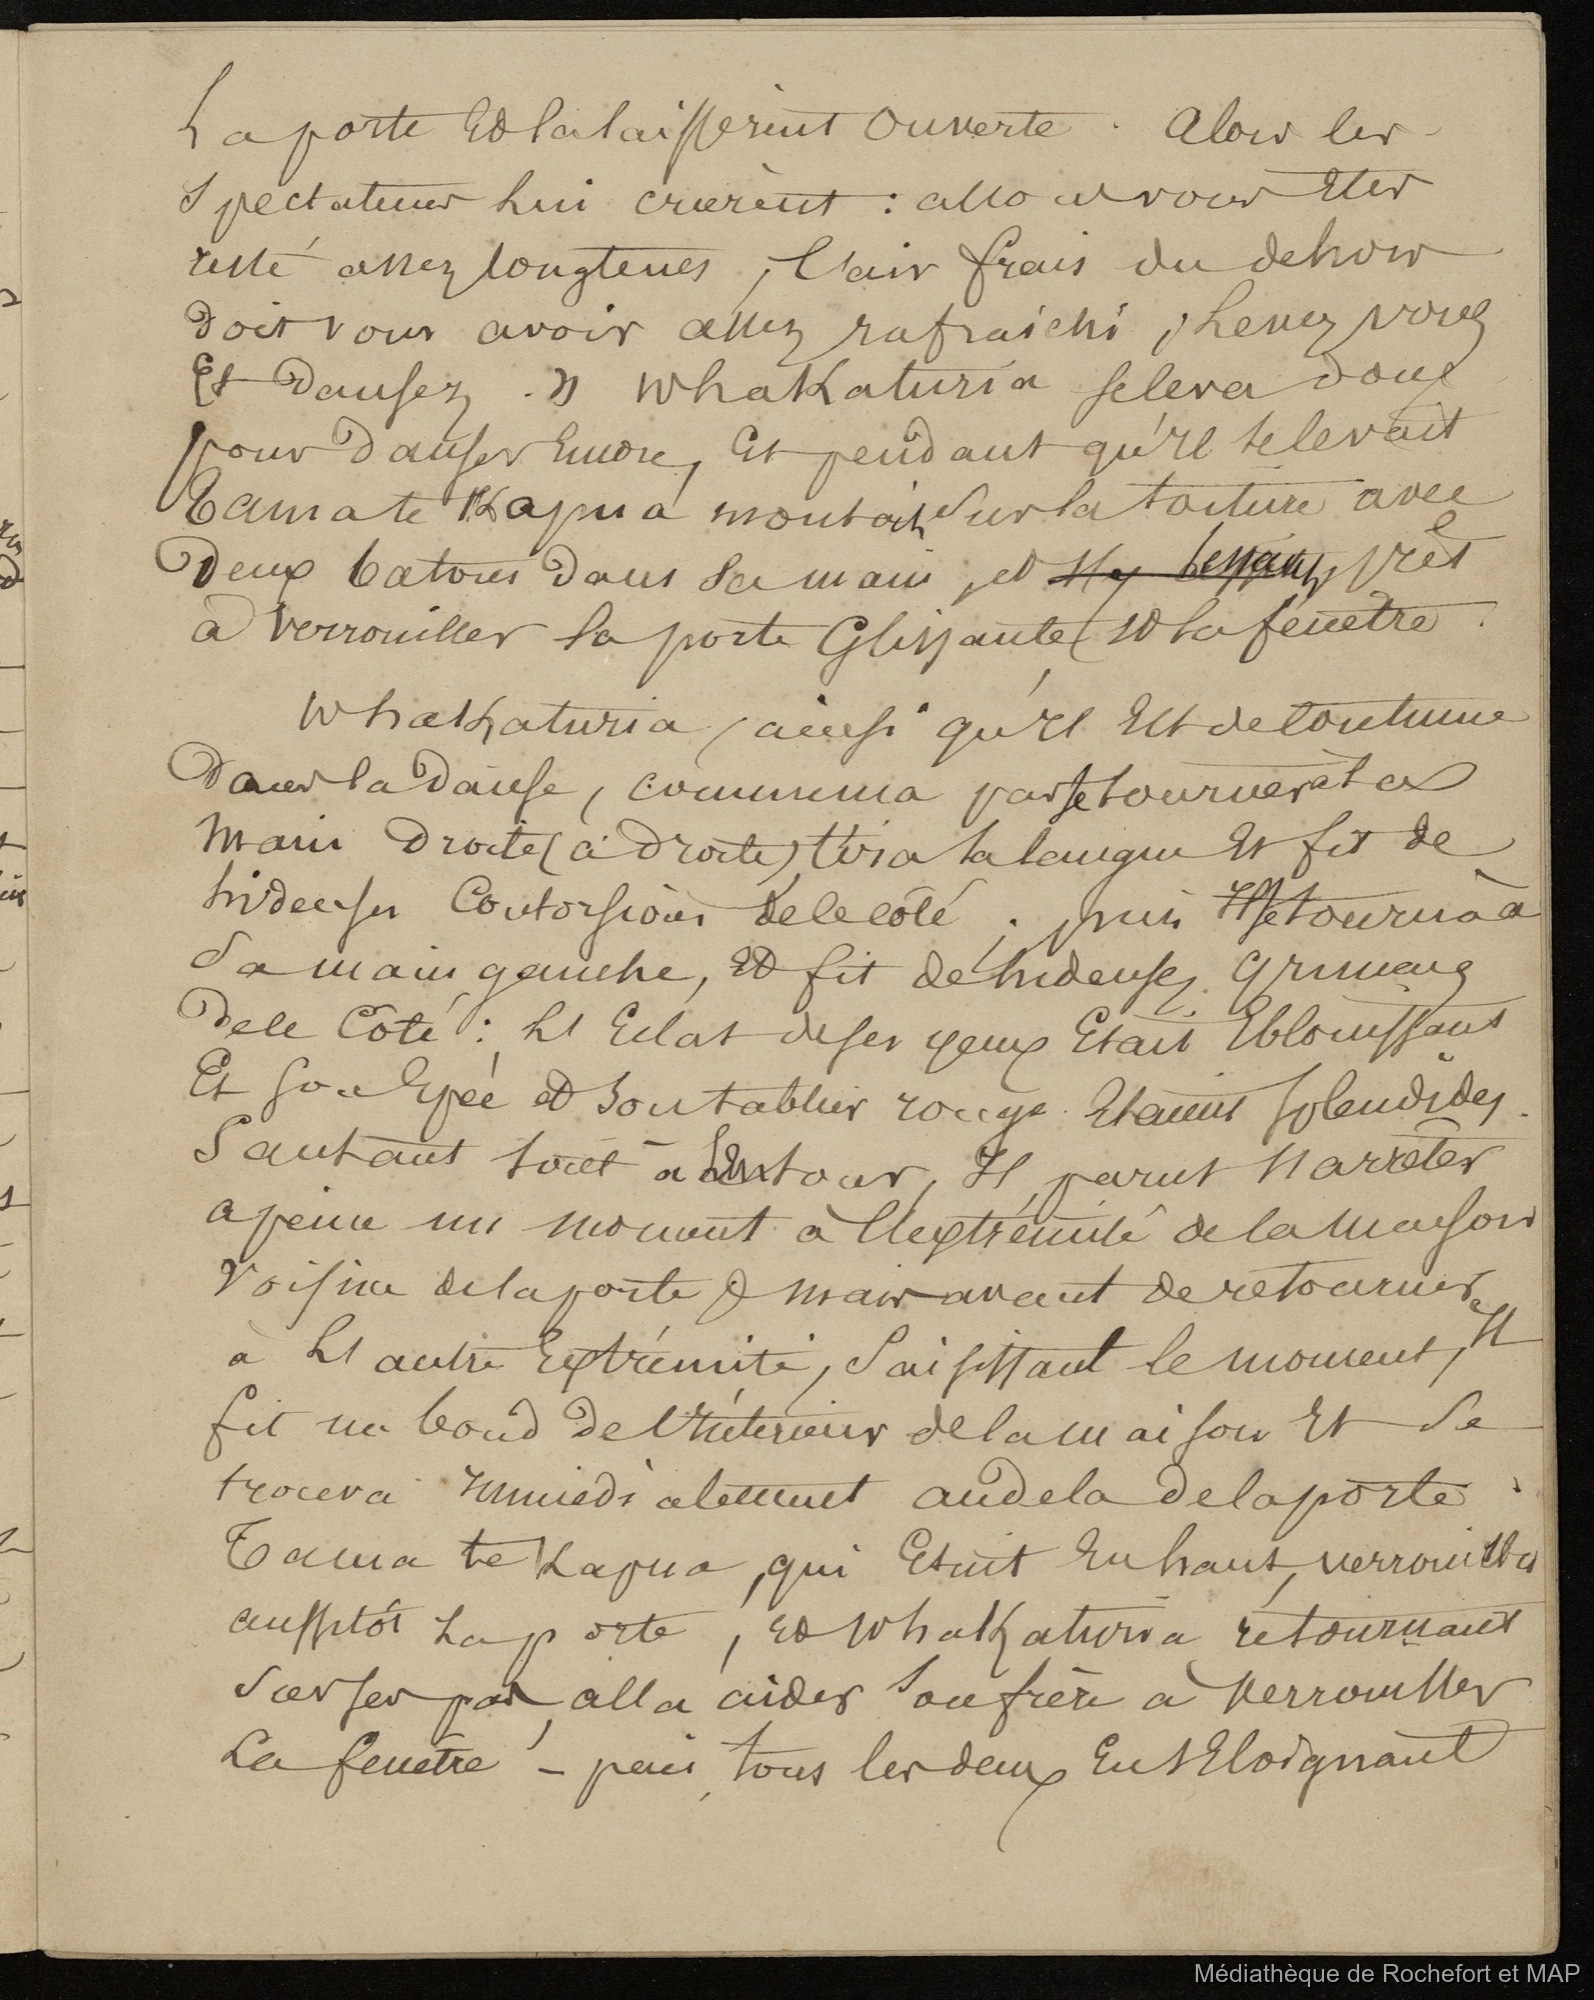 La porte Et la laissèrent Ouverte. Alors les
Spectateurs lui crièrent : allons vous Etes
resté assez longtems, l'air frais du dehors
Doit vous avoir assez rafraichi, Levez vous
Et Dansez. » WhaKaturia se leva donc
pour Danser Encore, Et pendant qu'Il se levait
Tama te Kapua montait Sur la toiture avec
Deux batons Dans Sa main, et prèt
à Verrouiller la porte Glissante Et la fenêtre.
WhaKaturia, ainsi qu'Il Est de Coutume
Dans la Danse, commença par se tourner à la
Main Droite (à droite), tira la langue Et fit de
hideuses Contorsions De ce côté ; puis Il se tourna à
Sa main gauche, Et fit de hideuses Grimaces
De ce Côté : L'Eclat de ses yeux Etait Eblouissant
Et son Epée et Son tablier rouge Etaient Splendides.
Sautant tout à L'Entour, Il parut s'arrêter
a peine un moment à l'Extrémité de la maison
Voisine de la porte & mais avant de retourner
à L'autre Extrémité, Saisissant le moment, Il
fit un bond de l'Intérieur de la maison Et Se
trouva Immédiatement au dela de la porte.
Tama te Kapua, qui Etait En haut, verrouilla
aussitôt La porte, Et WhaKaturia retournant
Sur ses pas, alla aider Son frère à Verrouiller
La fenêtre – puis tous les deux En s'Eloignant